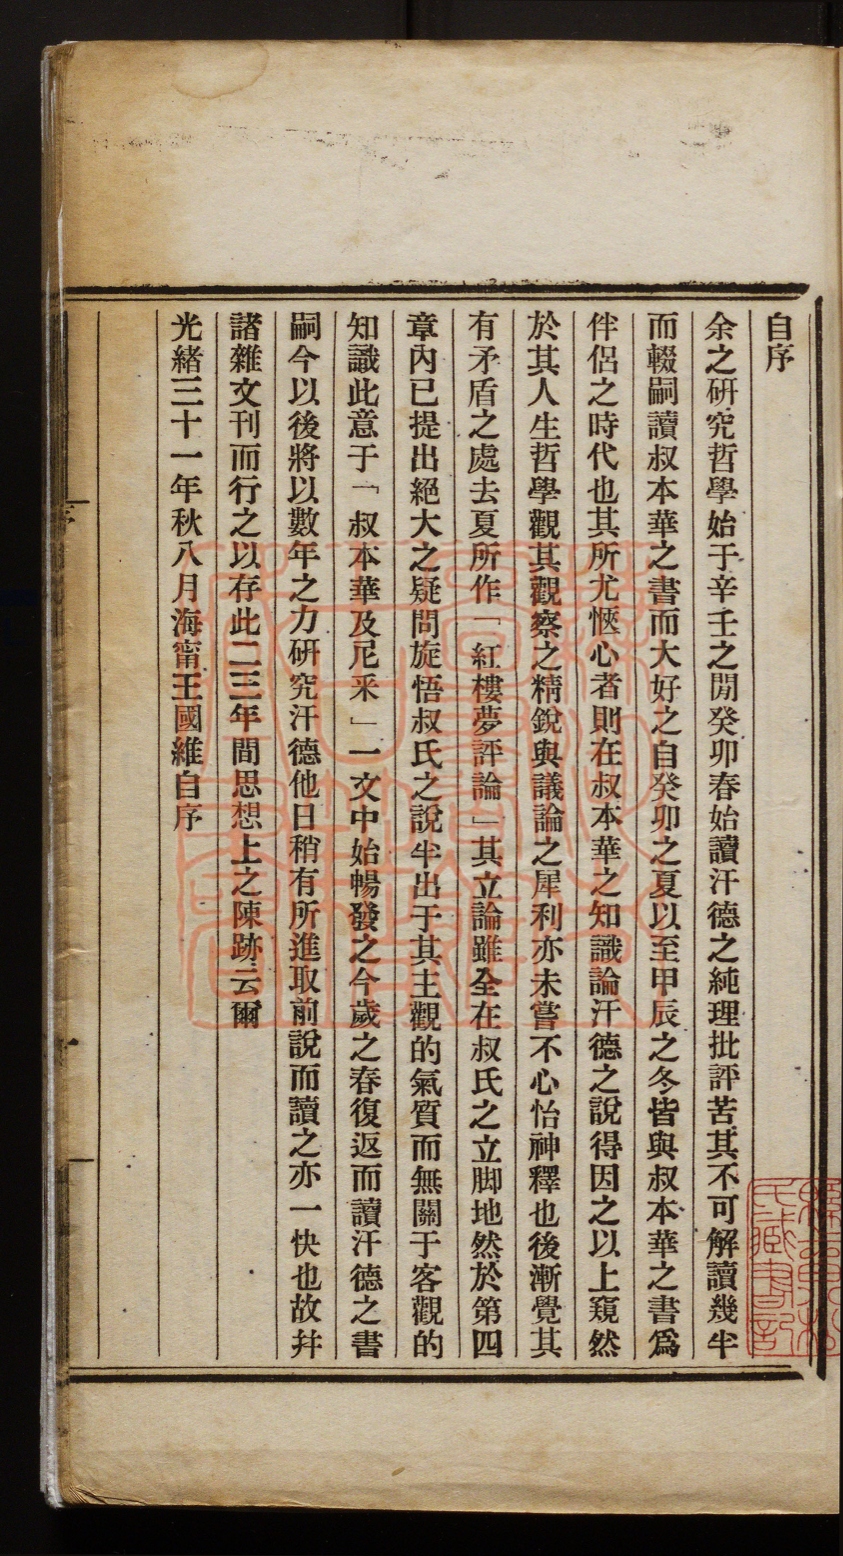 自序
余之研究哲學始于辛壬之閒癸卯春始讀汗德之純理批評苦其不可解讀幾半
而輟嗣讀叔本華之書而大好之自癸卯之夏以至甲辰之冬皆與叔本華之書爲
伴侶之時代也其所尤愜心者則在叔本華之知識論汗德之說得因之以上窺然
於其人生哲學觀其觀察之精銳與議論之犀利亦未嘗不心怡神釋也後漸覺其
有矛盾之處去夏所作「紅樓夢評論」其立論雖全在叔氏之立脚地然於第四
章內已提出絕大之疑問旋悟叔氏之說半出于其主觀的氣質而無關于客觀的
知識此意于「叔本華及尼釆」一文中始暢發之今歲之春復返而讀汗德之書
嗣今以後將以數年之力研究汗德他日稍有所進取前說而讀之亦一快也故幷
諸雜文刊而行之以存此二三年間思想上之陳跡云爾
光緒三十一年秋八月海甯王國維自序